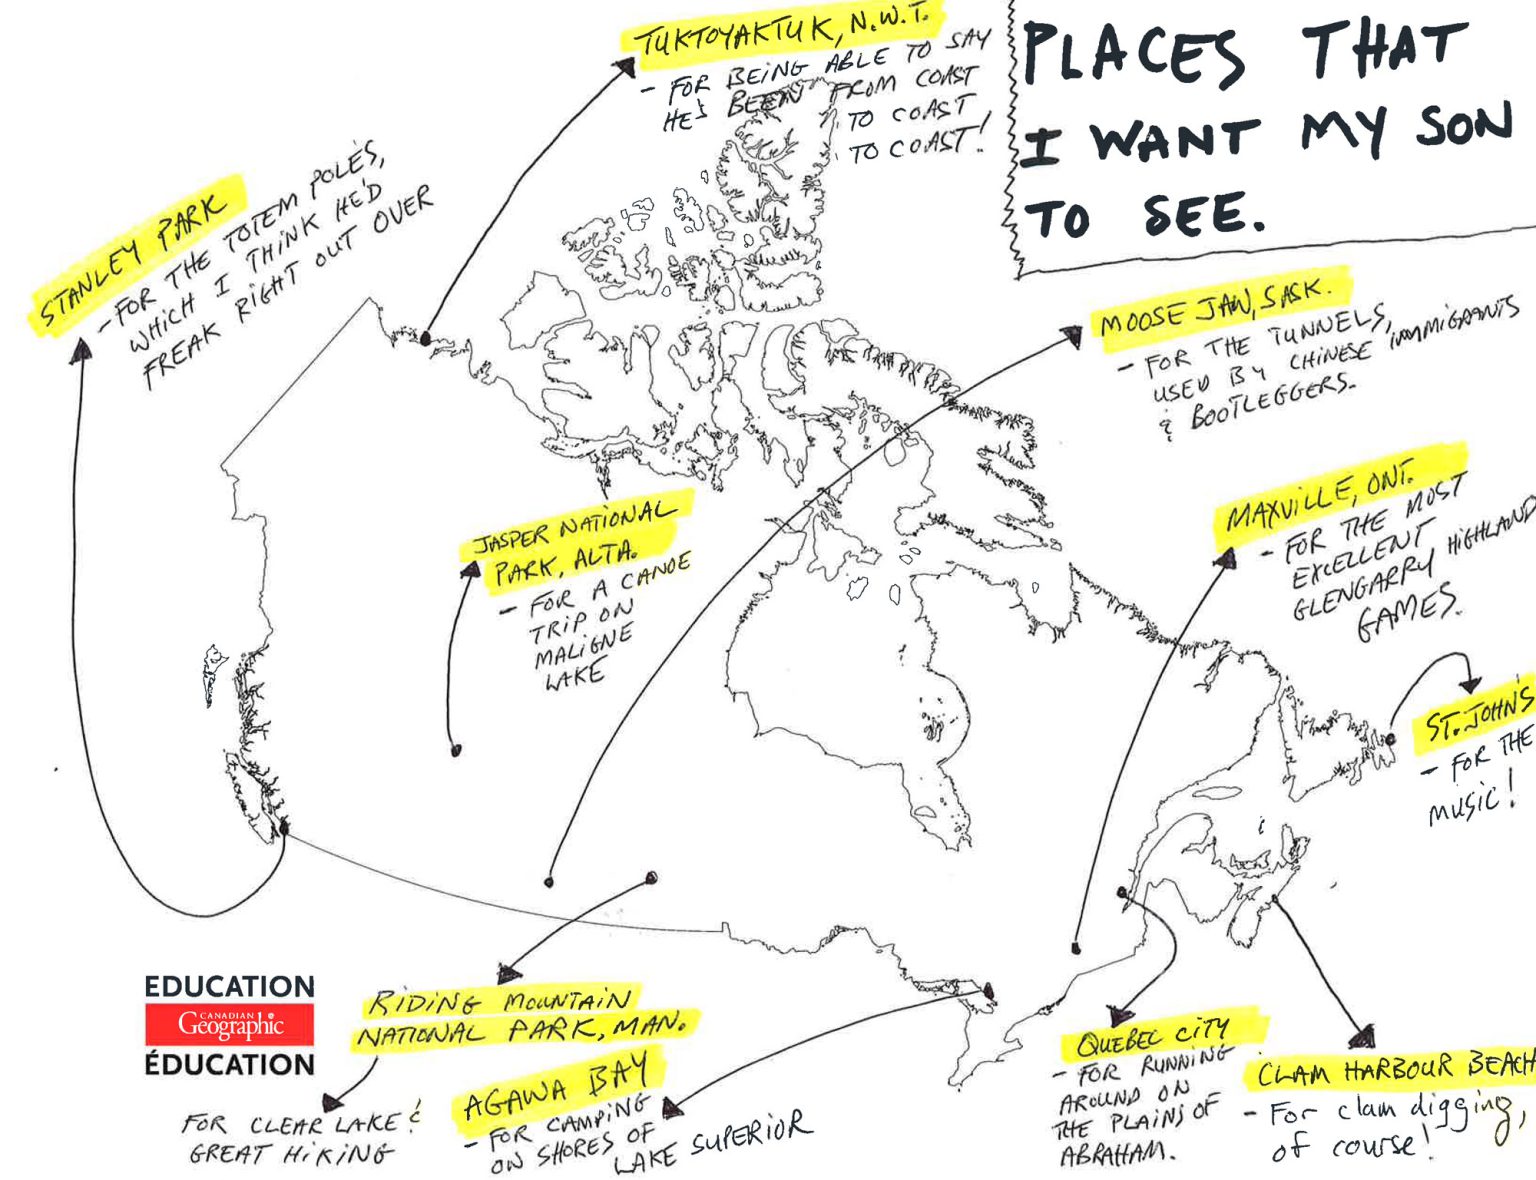 PLACES THAT
I WANT MY SON
TO SEE.
TUKTOYAKTUK, N.W.T.
- FOR BEING ABLE TO SAY
HE'S BEEN FROM COAST
TO COAST
TO COAST!
STANLEY PARK
- FOR THE TOTEM POLES,
WHICH I THINK HE'D
FREAK RIGHT OUT OVER
MOOSE JAW, SASK.
- FOR THE TUNNELS,
USED BY CHINESE IMMIGRANTS
& BOOTLEGGERS.
MAXVILLE, ONT.
- FOR THE MOST
EXCELLENT
GLENGARRY HIGHLAND
GAMES.
JASPER NATIONAL
PARK, ALTA.
- FOR A CANOE
TRIP ON
MALIGNE
LAKE
ST. JOHN'S
- FOR THE
MUSIC!
RIDING MOUNTAIN
NATIONAL PARK, MAN.
FOR CLEAR LAKE &
GREAT HIKING
AGAWA BAY
- FOR CAMPING
ON SHORES OF
LAKE SUPERIOR
QUEBEC CITY
- FOR RUNNING
AROUND ON
THE PLAINS OF
ABRAHAM.
CLAM HARBOUR BEACH
- For clam digging,
of course!
EDUCATION
CANADIAN
Geographic
ÉDUCATION